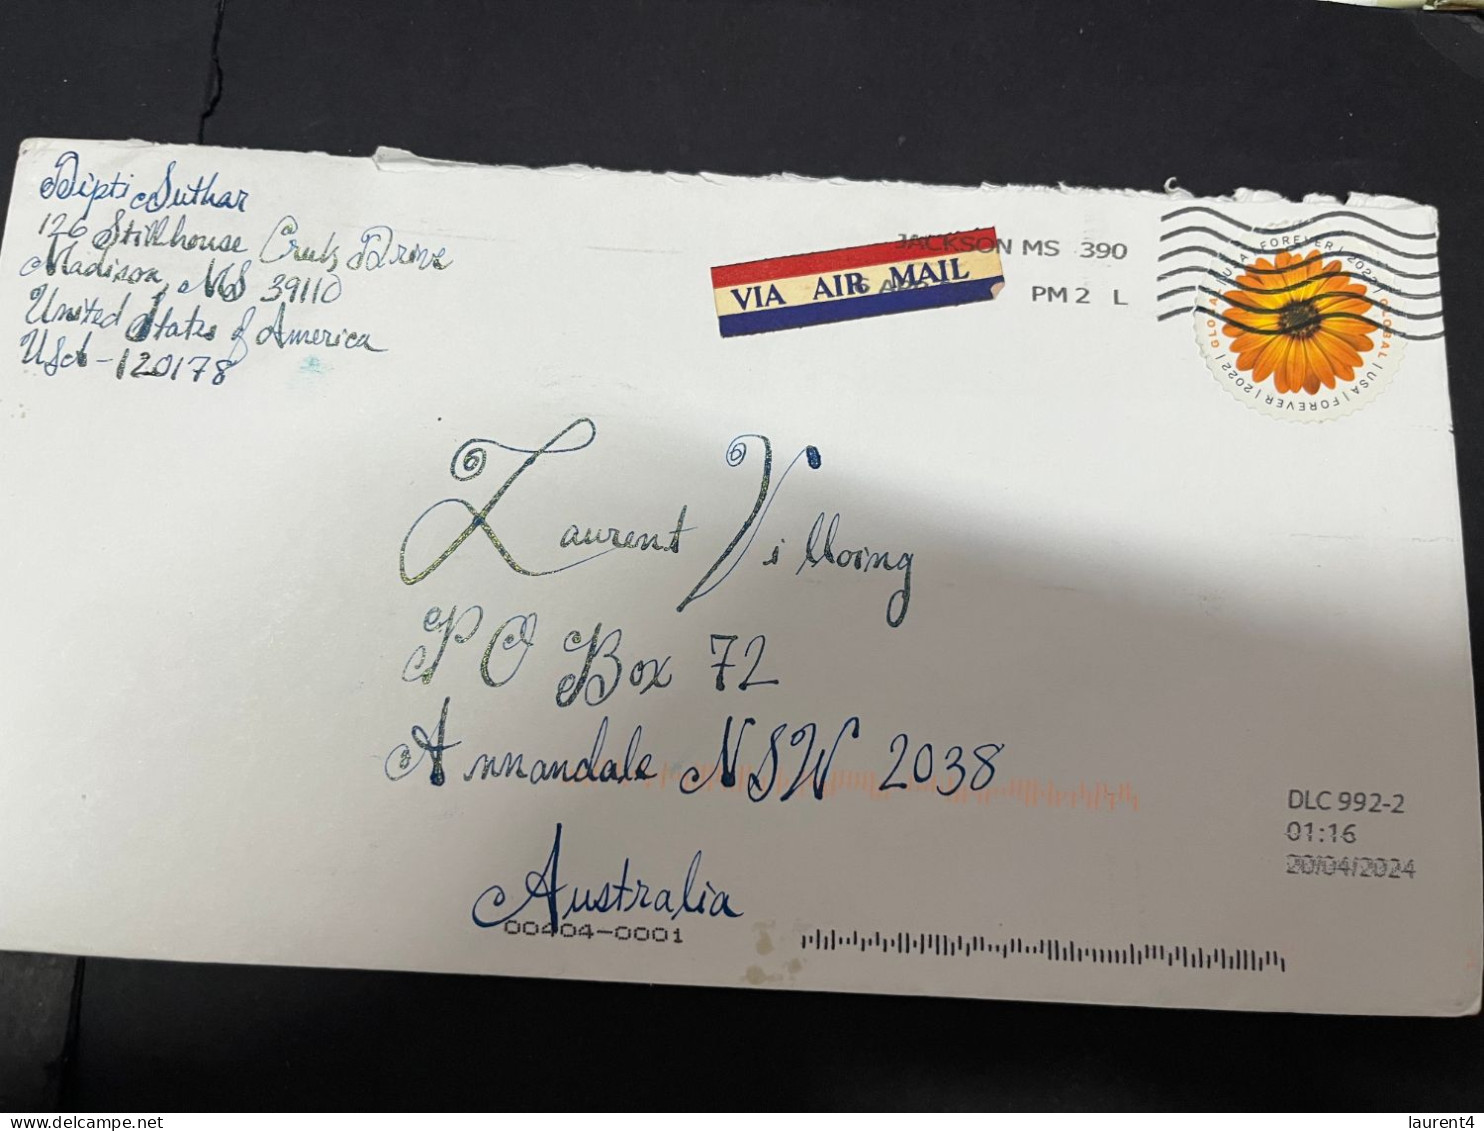 Dipti Suthar
126 Stillhouse Creek Drive
Madison, MS 39110
United States of America
USA-120178
JACKSON MS 390
PM 2 L
VIA AIR MAIL
GLOBAL | USA | FOREVER | 2022 | GLOBAL | USA | FOREVER | 2022 |
Laurent Villoing
PO Box 72
Annandale NSW 2038
Australia
00404-0001
DLC 992-2
01:16
20/04/2024
laurent4